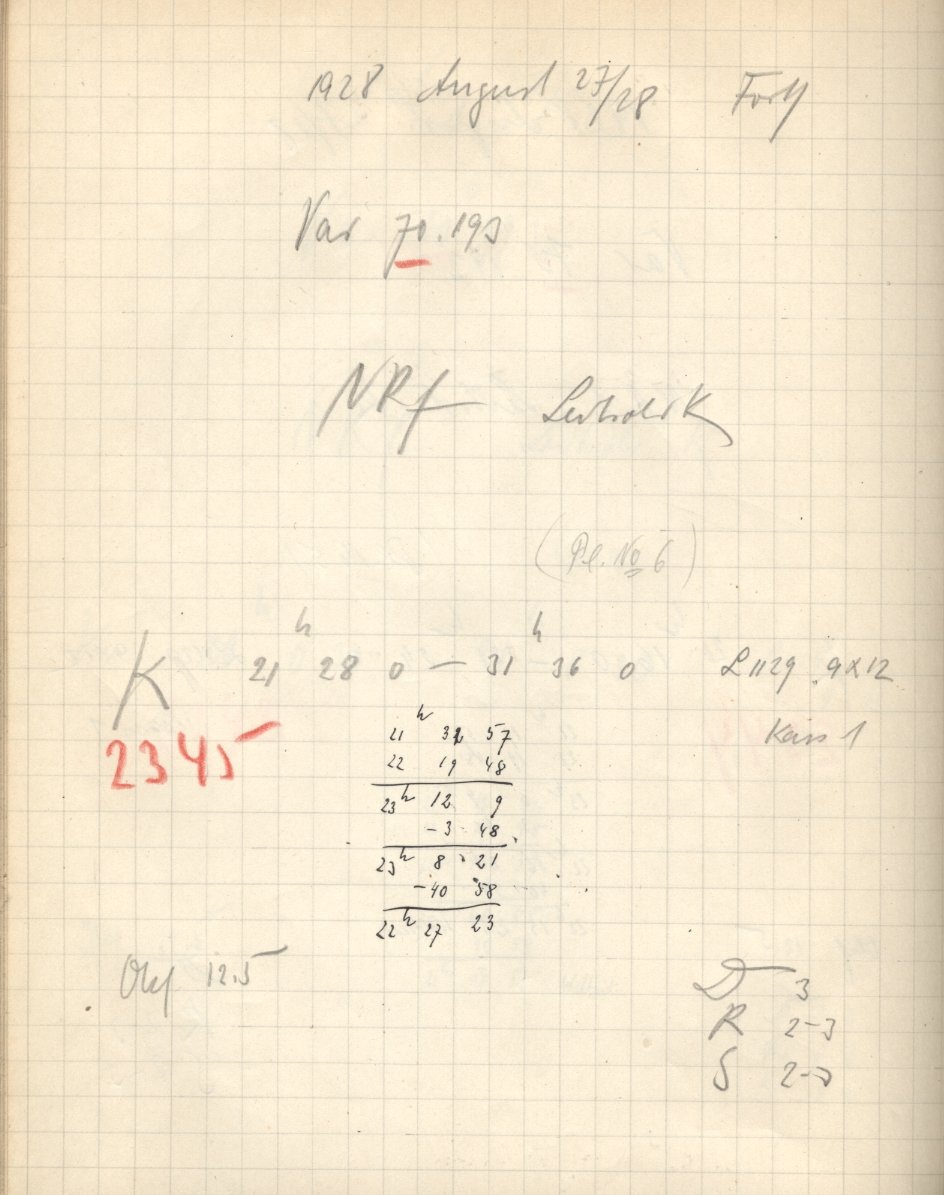 1928 August 27/28 Forts
Var 70.193
NRf
(Pl. No 6)
K 21h 28 0 – 31h 36 0 L 1129 9x12
2345 Kass 1
21h 32 57
22 19 48
23h 12 9
-3 48
23h 8 21
-40 58
22h 27 23
Obj 12.5
D 3
R 2-3
S 2-3